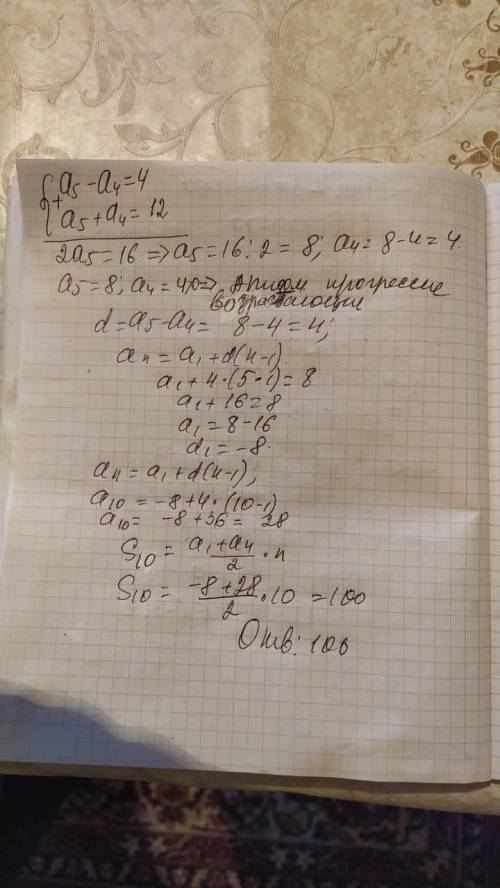 a₅ - a₄ = 4
+
a₅ + a₄ = 12
2a₅ = 16 => a₅ = 16 : 2 = 8; a₄ = 8 - 4 = 4.
a₅ = 8; a₄ = 4 => прогрессие
возрастающие
d = a₅ - a₄ = 8 - 4 = 4;
aₙ = a₁ + d(n-1).
a₁ + 4·(5·1) = 8
a₁ + 16 = 8
a₁ = 8 - 16
d₁ = -8.
aₙ = a₁ + d(n-1);
a₁₀ = -8 + 4·(10-1)
a₁₀ = -8 + 36 = 28
S₁₀ = (a₁ + aₙ)/2 · n
S₁₀ = (-8 + 28)/2 · 10 = 100
Отв: 100